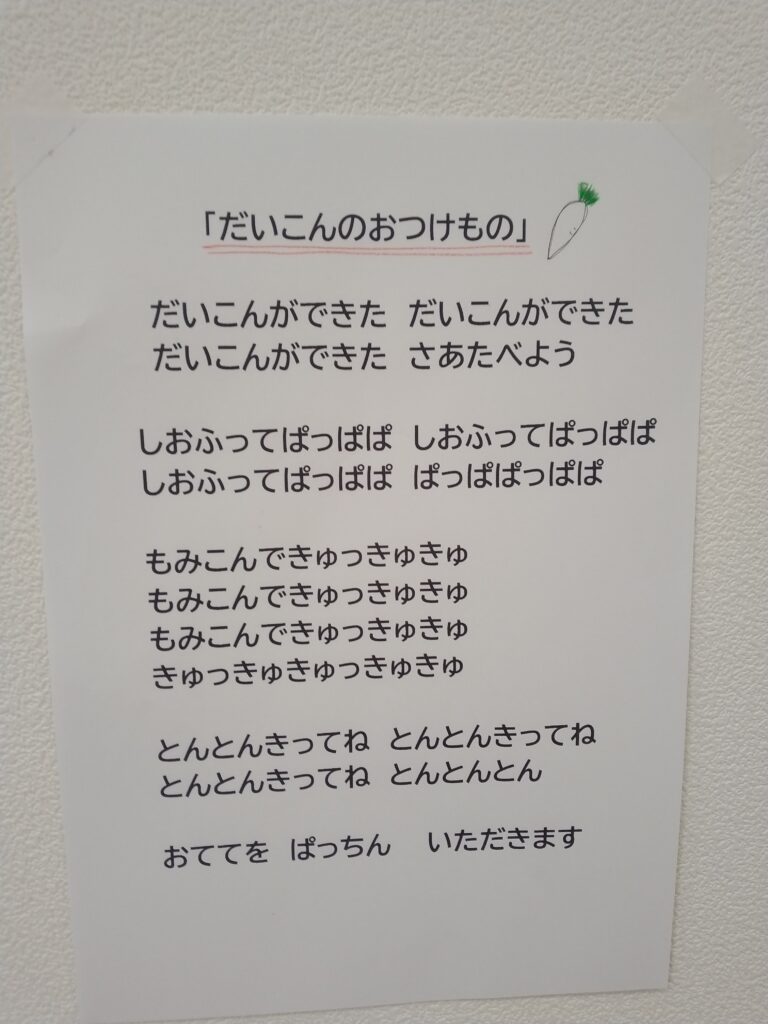 「だいこんのおつけもの」
だいこんができた だいこんができた
だいこんができた さあたべよう
しおふってぱっぱぱ しおふってぱっぱぱ
しおふってぱっぱぱ ぱっぱぱっぱぱ
もみこんできゅっきゅきゅ
もみこんできゅっきゅきゅ
もみこんできゅっきゅきゅ
きゅっきゅきゅっきゅきゅ
とんとんきってね とんとんきってね
とんとんきってね とんとんとん
おててを ぱっちん いただきます